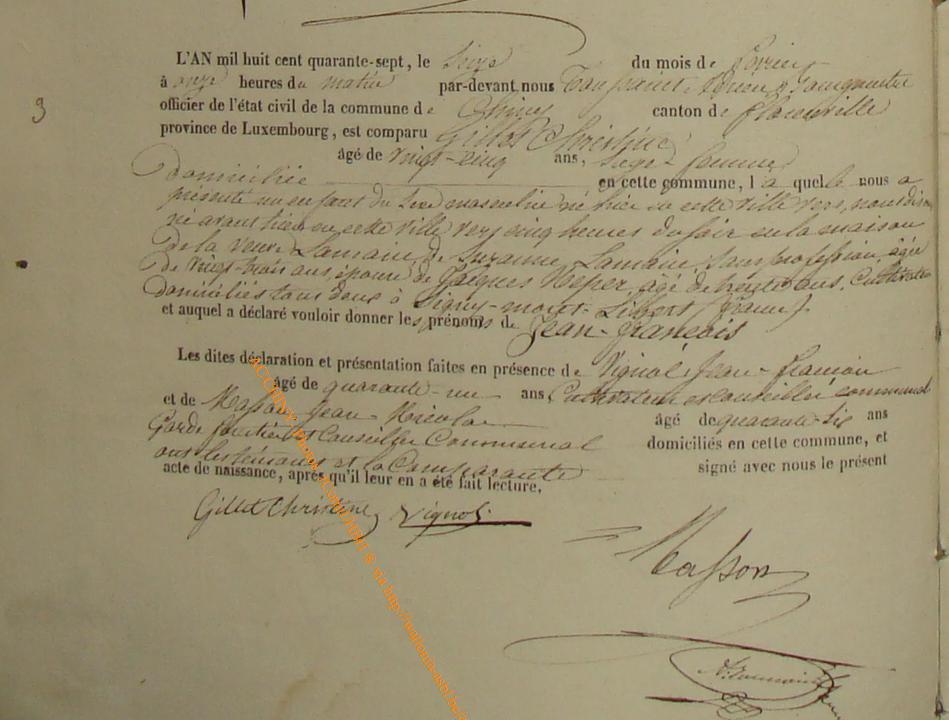 3
L'AN mil huit cent quarante-sept, le Seize du mois de
à onze heures du matin par-devant nous
officier de l'état civil de la commune de Chiny canton de florenville
province de Luxembourg, est comparu Gillet Christine
âgé de vingt-cinq ans, Sage-femme
Domiciliée en cette commune, laquelle nous a
présenté un enfant du Sexe masculin né hier en cette ville vers, nous
né avant hier en cette ville vers cinq heures du soir en la maison
de la Veuve Lamain, de Suzanne Lamain, Sans profession, âgée
de vingt trois ans, épouse de Jacques âgé de trente ans, Cultivateur
domiciliés tous deux à Signy-mont-Libert (france)
et auquel a déclaré vouloir donner les prénoms de Jean-françois
Les dites déclaration et présentation faites en présence de Vignol Jean-
âgé de quarante-un ans Cultivateur et Conseiller communal
et de Masson Jean-Nicolas âgé de quarante-six ans
Garde forestier et Conseiller Communal domiciliés en cette commune, et
ont les témoins et la Comparante signé avec nous le présent
acte de naissance, après qu'il leur en a été fait lecture.
Gillet Christine Vignol
Masson